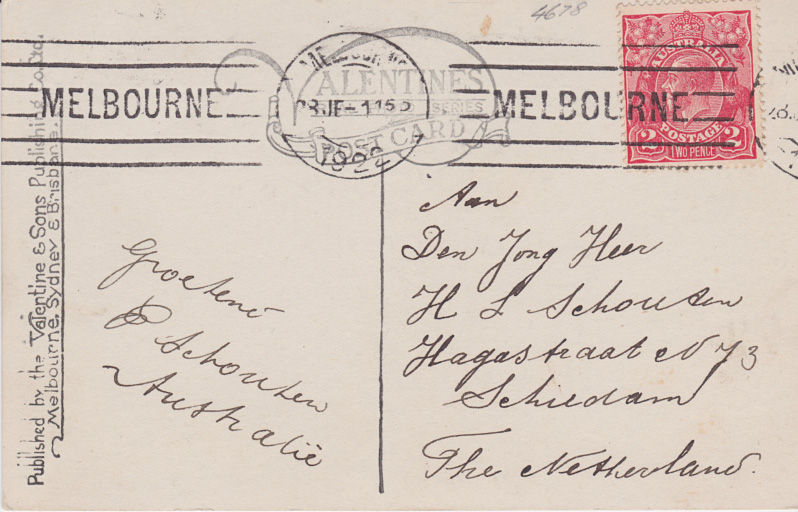 4678
MELBOURNE
MELBOURNE
1922
VALENTINES
SERIES
POST CARD
MELBOURNE
AUSTRALIA
2 POSTAGE 2
TWO PENCE
Published by the Valentine & Sons Publishing Co. Ltd.
Melbourne, Sydney & Brisbane.
Groeten
P Schouten
Australië
Aan
Den Jong Heer
H L Schouten
Hagastraat N 73
Schiedam
The Netherland.